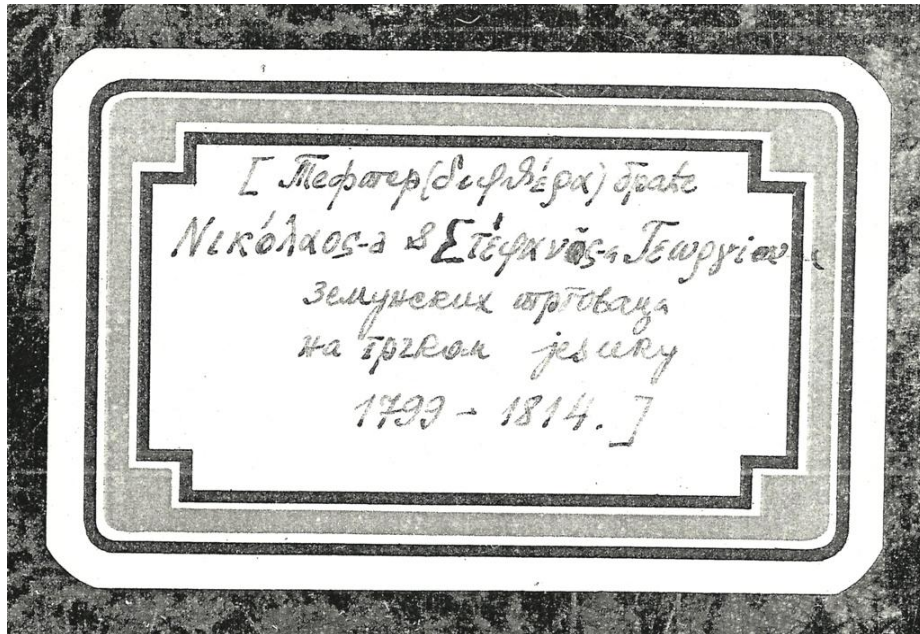 [ Тефтер (διφθέρα) браће
Νικόλαος-а & Στέφανος-а Γεωργίου
земунских трговаца
на грчком језику
1799 - 1814. ]